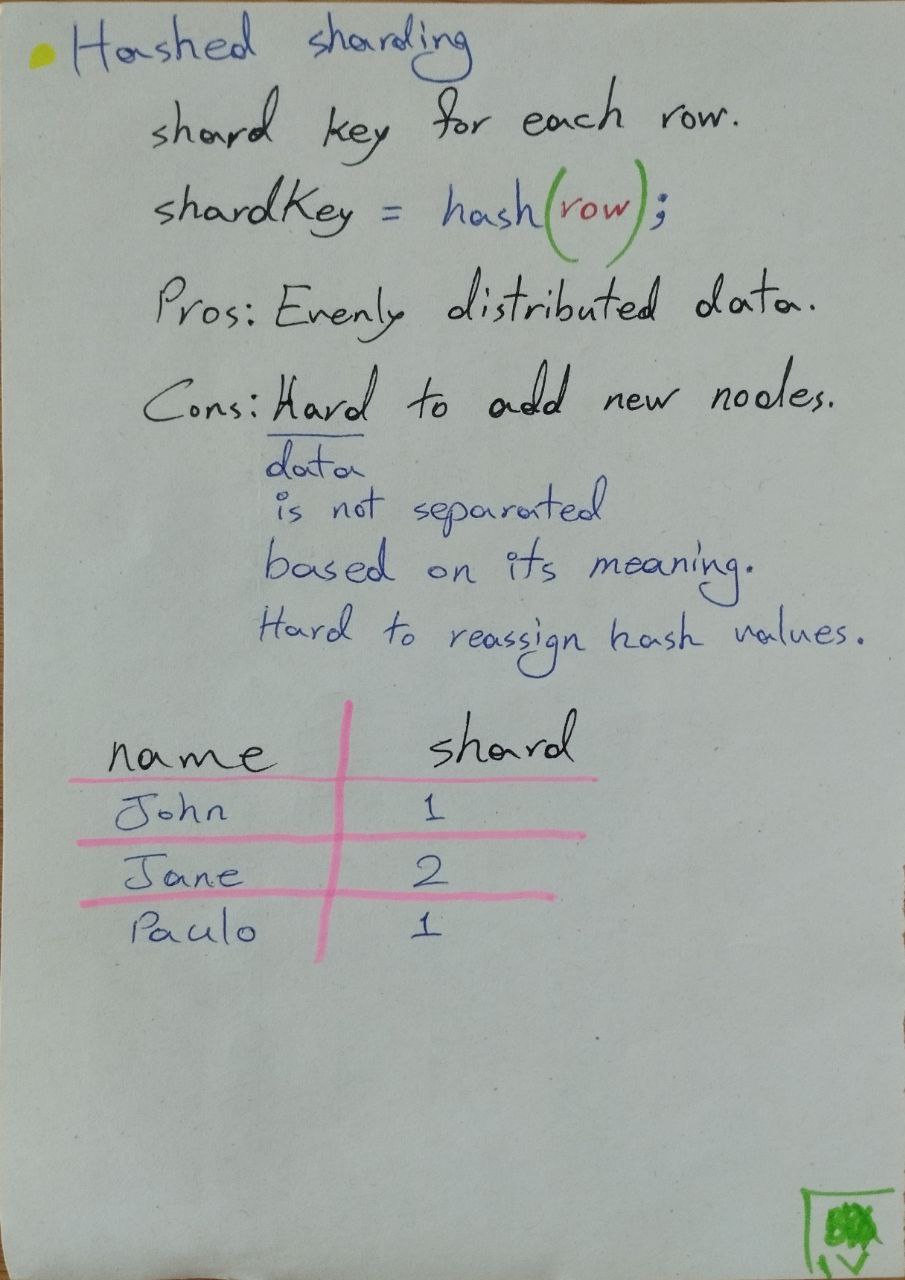 Hashed sharding
shard key for each row.
shardKey = hash(row);
Pros: Evenly distributed data.
Cons: Hard to add new nodes.
data
is not separated
based on its meaning.
Hard to reassign hash values.
name shard
John 1
Jane 2
Paulo 1